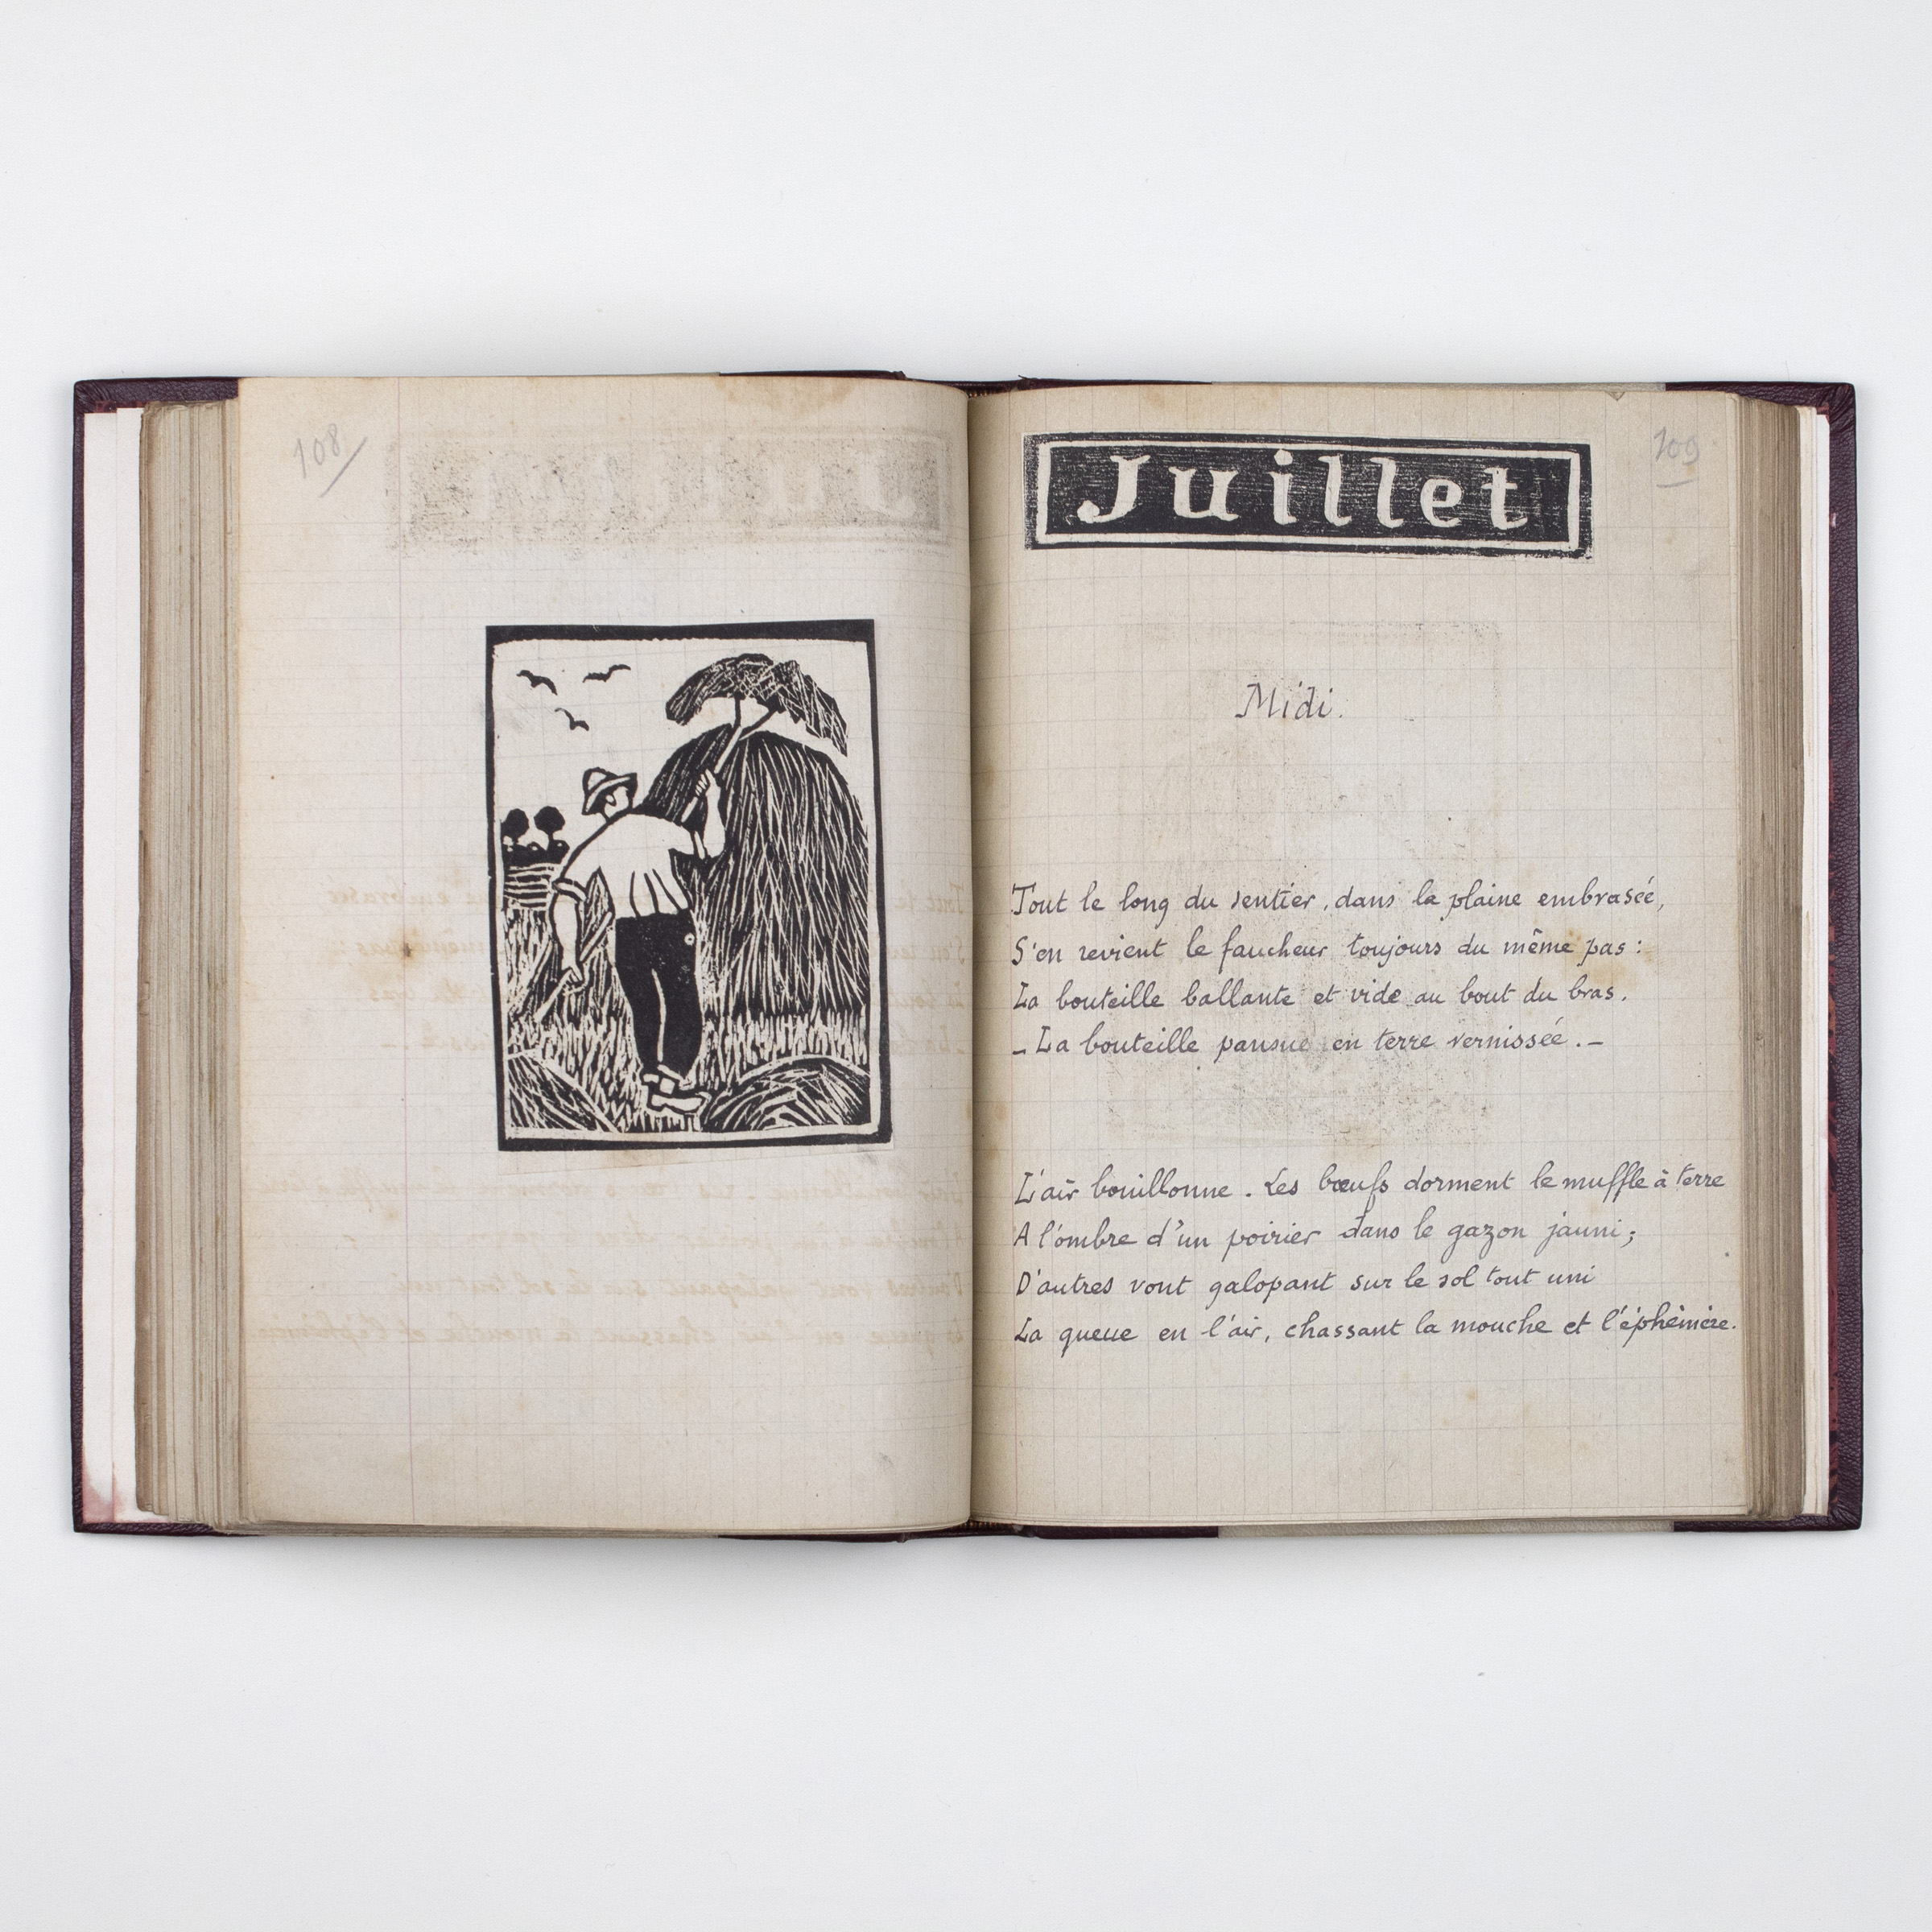 108
Juillet
109
Midi.
Tout le long du sentier, dans la plaine embrasée,
S'en revient le faucheur toujours du même pas :
La bouteille ballante et vide au bout du bras.
– La bouteille pansue en terre vernissée. –
L'air bouillonne. Les bœufs dorment le muffle à terre
A l'ombre d'un poirier dans le gazon jauni ;
D'autres vont galopant sur le sol tout uni
La queue en l'air, chassant la mouche et l'éphémère.